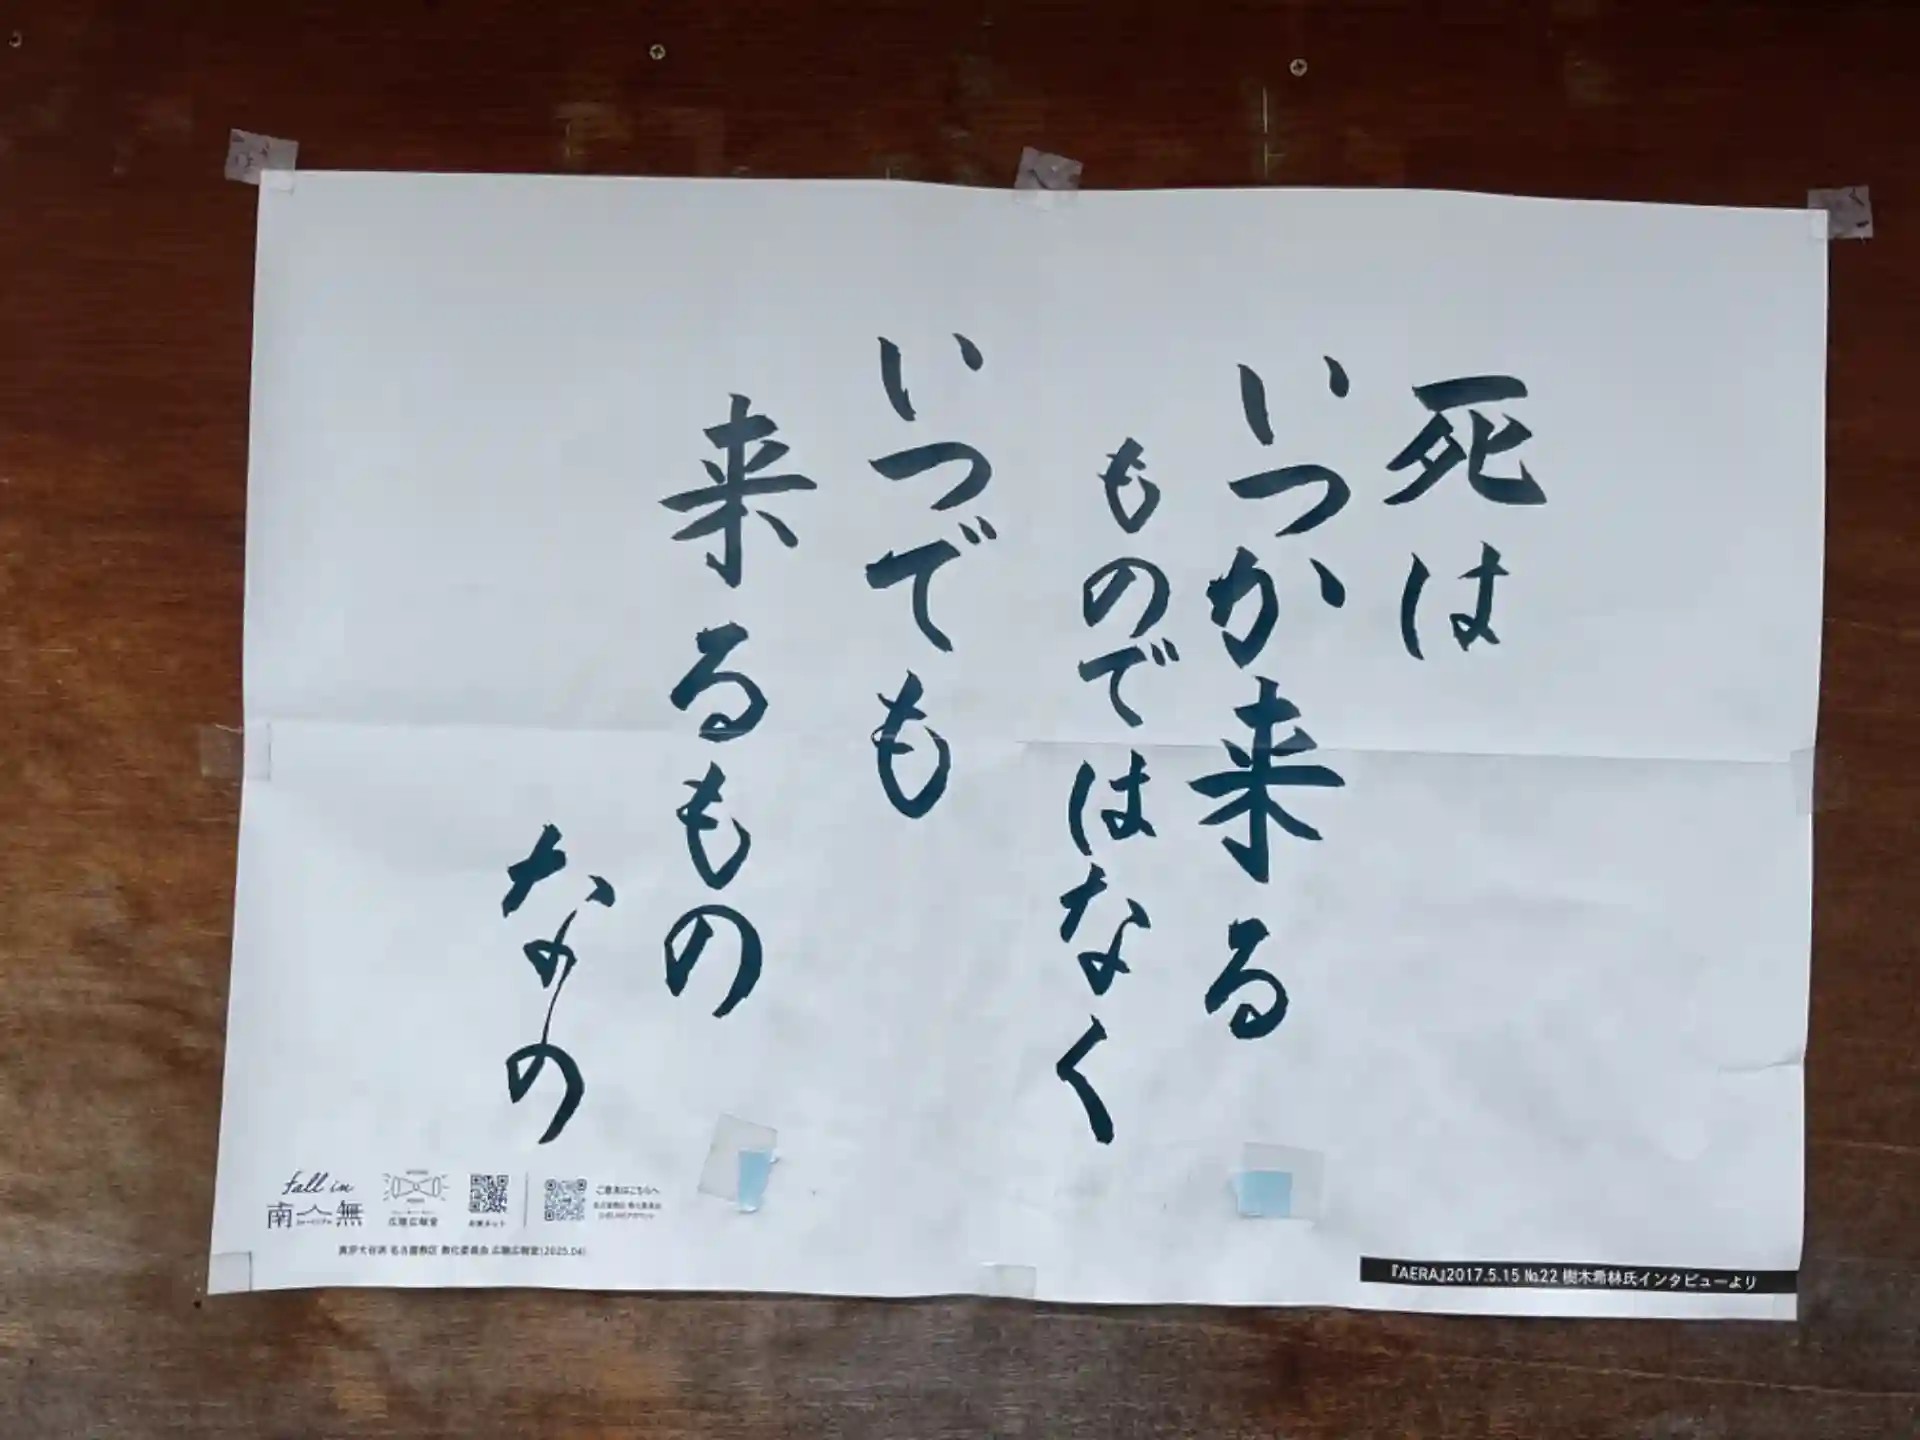 死は
いつか来る
ものではなく
いつでも
来るもの
なの
fall in
南人無
広聴広報室
ご意見はこちらへ
真宗大谷派 名古屋教区 教化委員会 広聴広報室(2025.04)
『AERA』2017.5.15 №22 樹木希林氏インタビューより